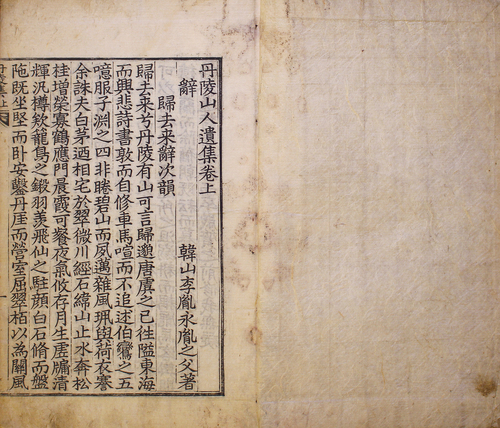 丹陵山人遺集卷上
辭
韓山李胤永胤之父著
歸去来辭次韻
歸去来兮丹陵有山可言歸邈唐虞之已往隘東海
而興悲詩書敦而自修車馬喧而不追述伯鸞之五
噫服子淵之四非睠碧山而夙邁雜風珮與荷衣搴
余誅夫白茅迺相宅於翠微川經石緯山止水奔松
桂增榮寡鶴應門晨霞可餐夜氣攸存月生虗牖清
輝汎樽欸籠鳥之鎩羽羡飛仙之駐顔白石脩而盤
陁既坐堅而卧安鑿丹厓而營室屈翠栢以為關風